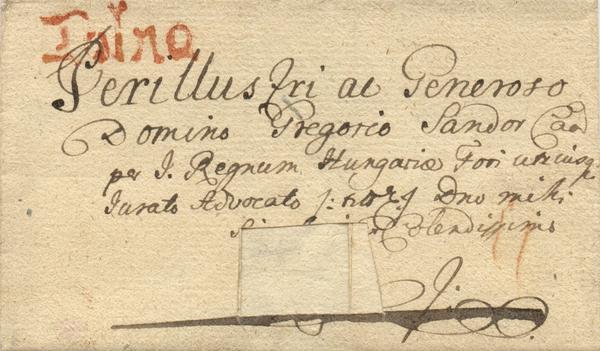 Perillustri ac Generoso
Domino Gregorio Sandor
per I. Regnum Hungariæ Fori utriusq
Jurato Advocato Dno mihi
Colendissimo